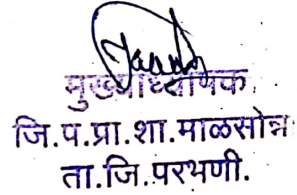 मुख्याध्यापक
जि.प.प्रा.शा.माळसोन्ना
ता.जि.परभणी.